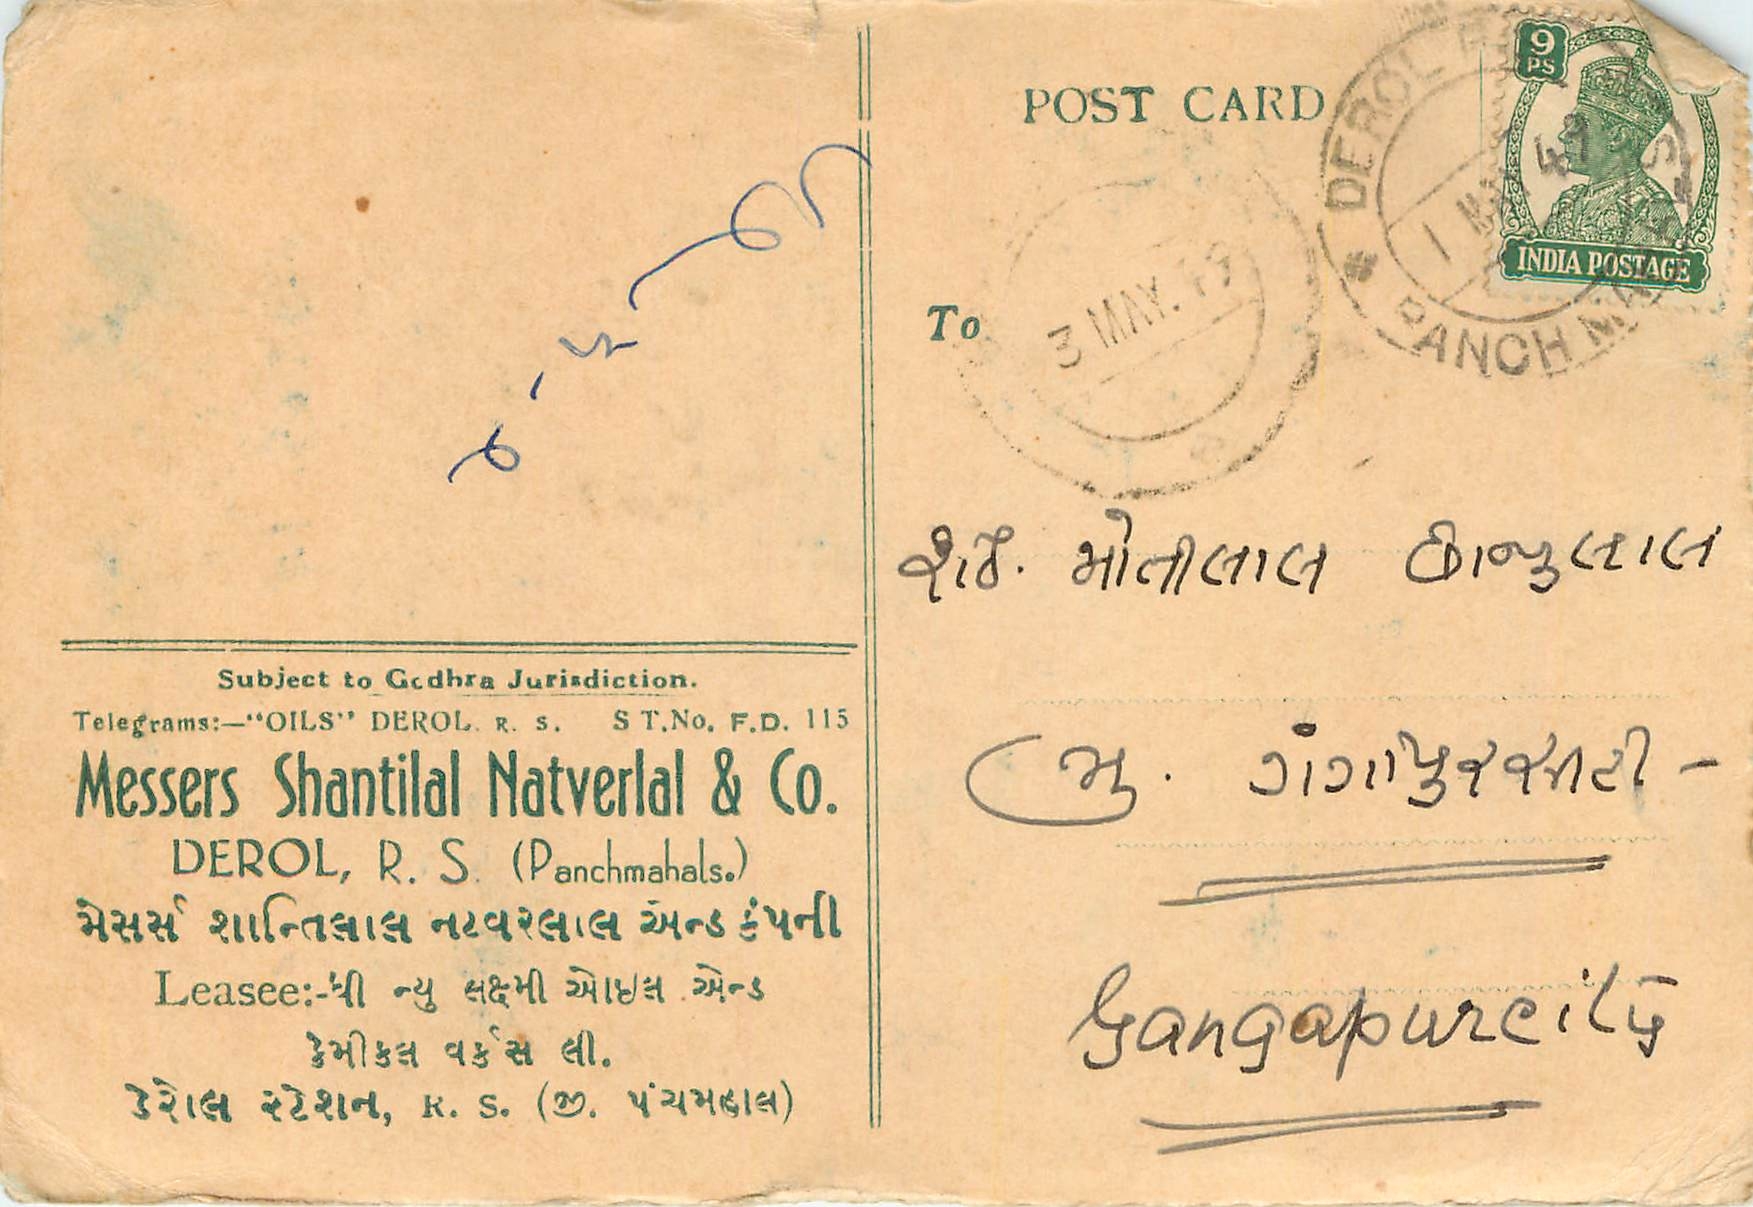 POST CARD
9
PS
INDIA POSTAGE
DEROL
PANCH MAHALS
1 MAY 49
3 MAY. 49
To
શેઠ. મોતીલાલ છાજુલાલ
મુ. ગંગાપુર સીટી -
Gangapurcity
Subject to Godhra Jurisdiction.
Telegrams:—"OILS" DEROL. R. S. S T. No. F.D. 115
Messers Shantilal Natverlal & Co.
DEROL, R. S. (Panchmahals.)
મેસર્સ શાન્તિલાલ નટવરલાલ અૅન્ડ કંપની
Leasee:-શ્રી ન્યુ લક્ષ્મી ઓઇલ એન્ડ
કેમીકલ વર્કસ લી.
ડેરોલ સ્ટેશન, R. S. (જી. પંચમહાલ)